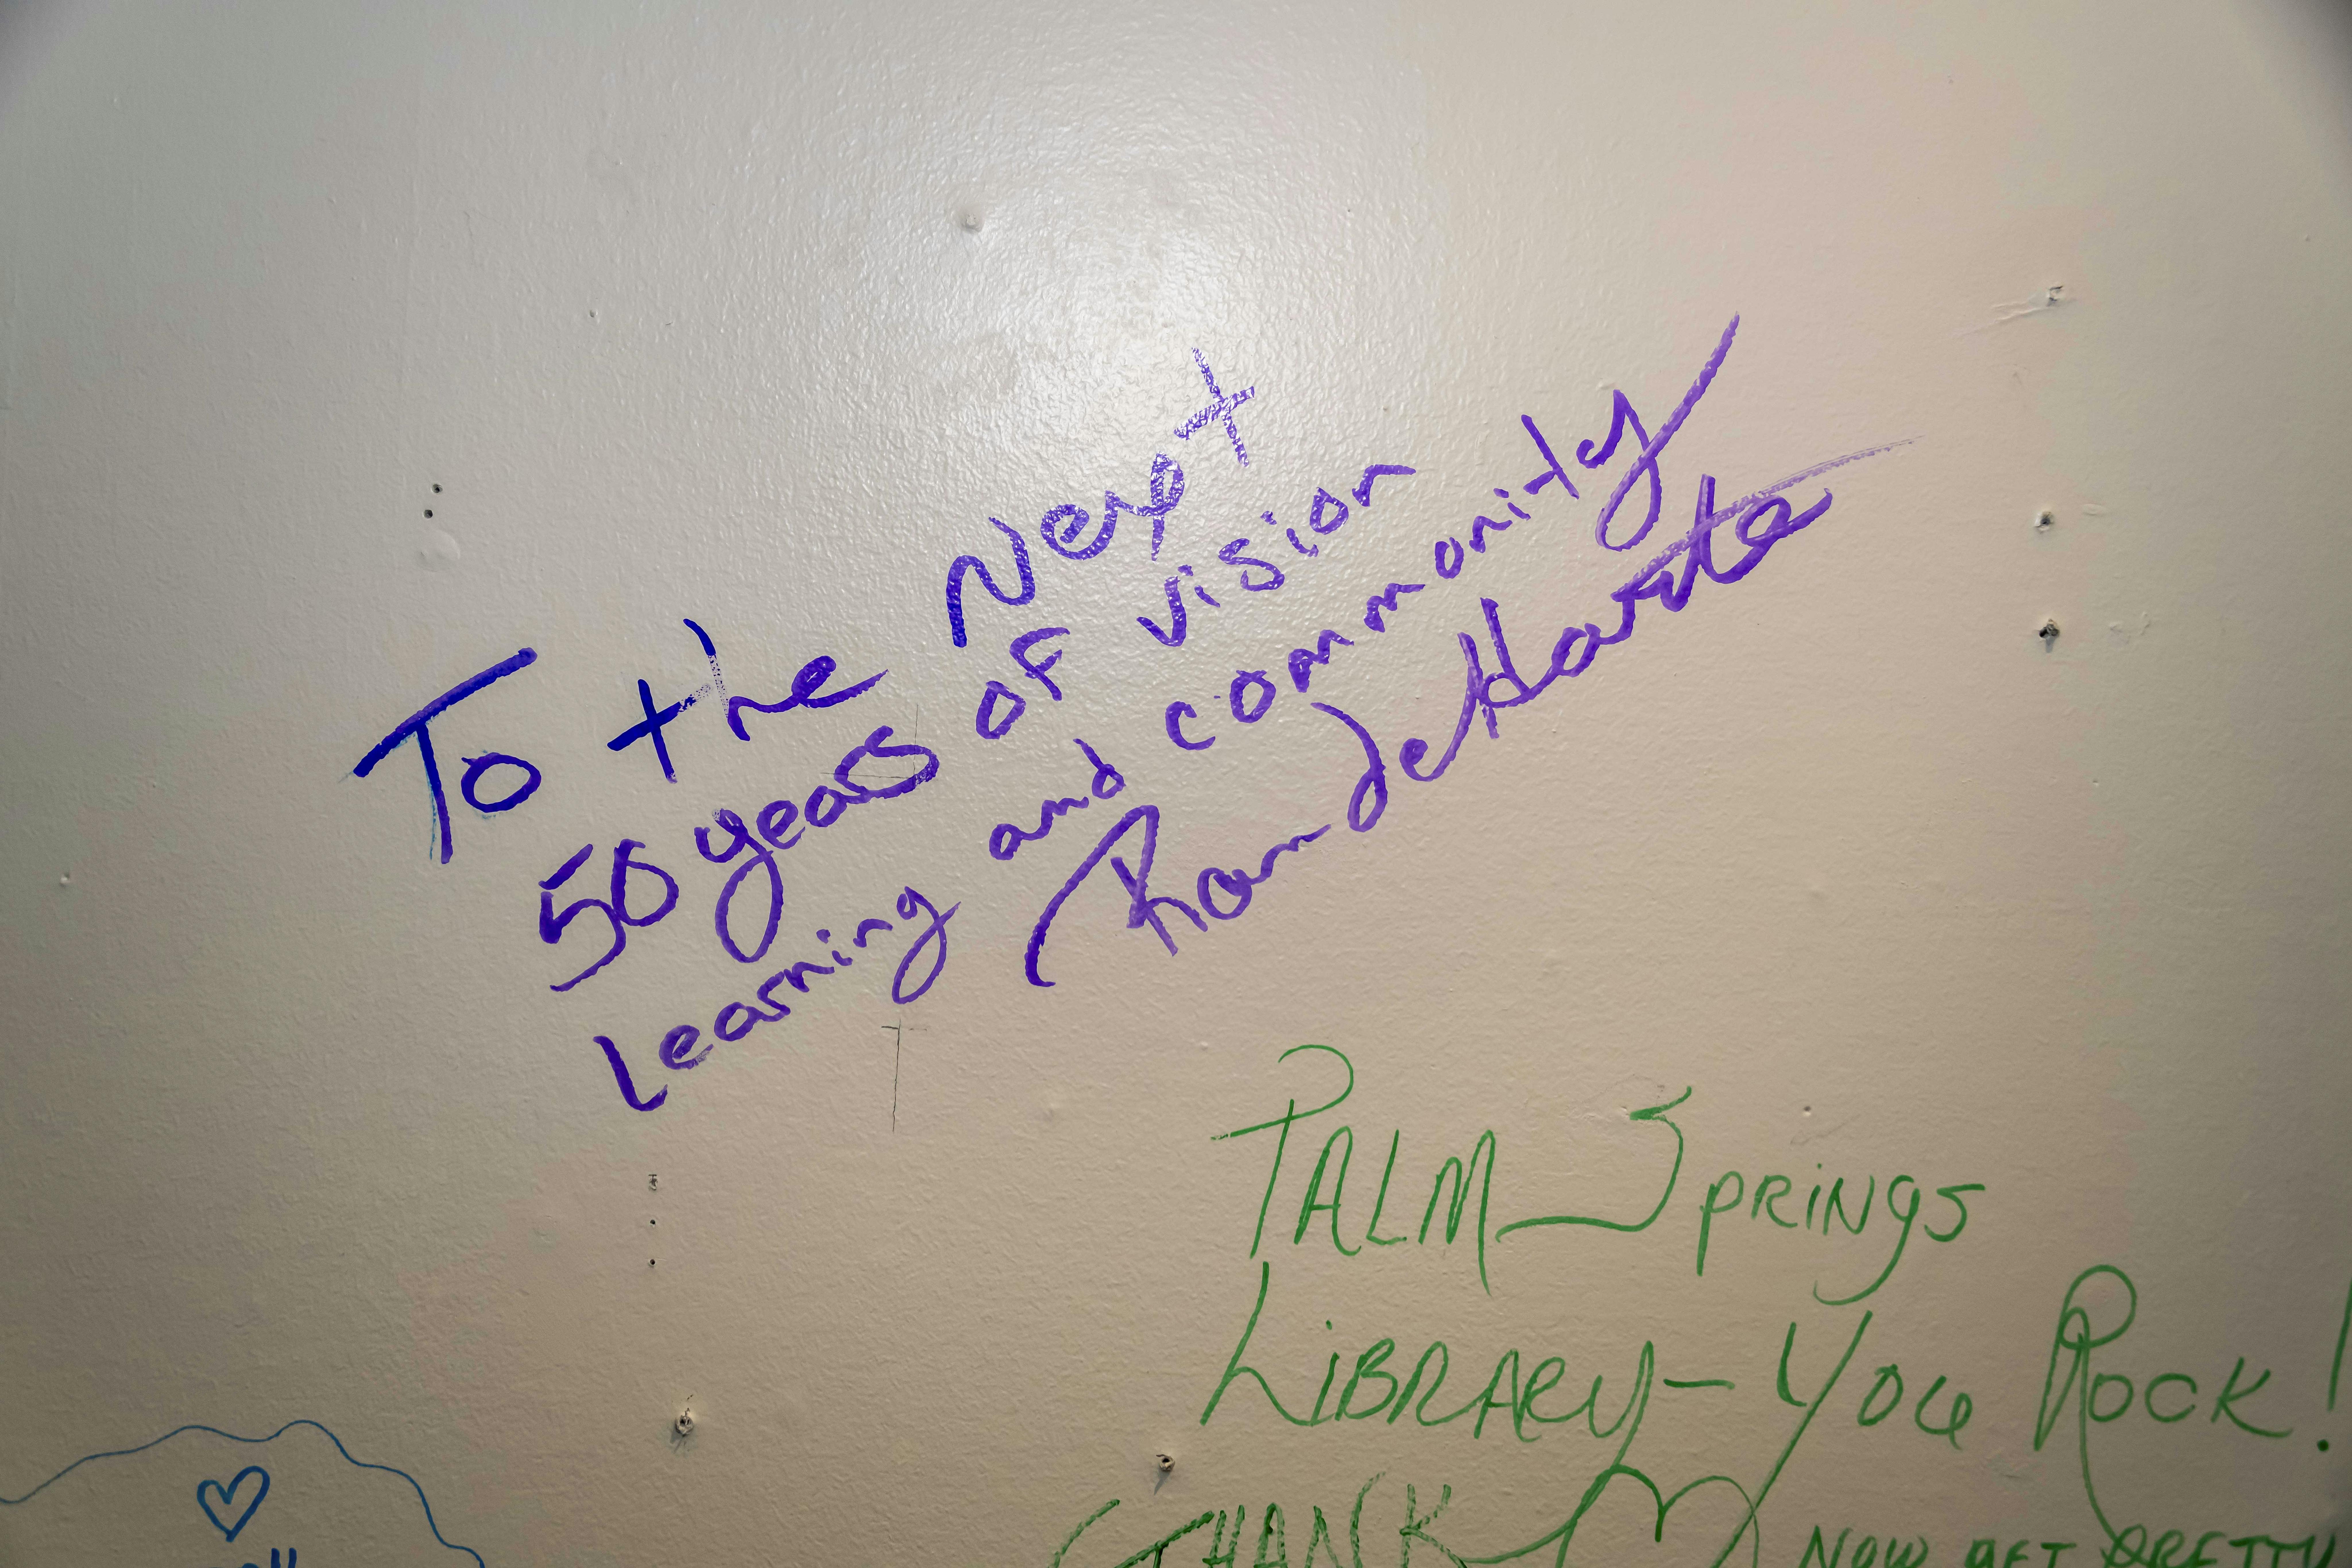 To the Next
50 years of vision
Learning and community
Ron deHarte
PALM SPRINGS
LIBRARY - YOU ROCK!
THANK
NOW GET PRETTY